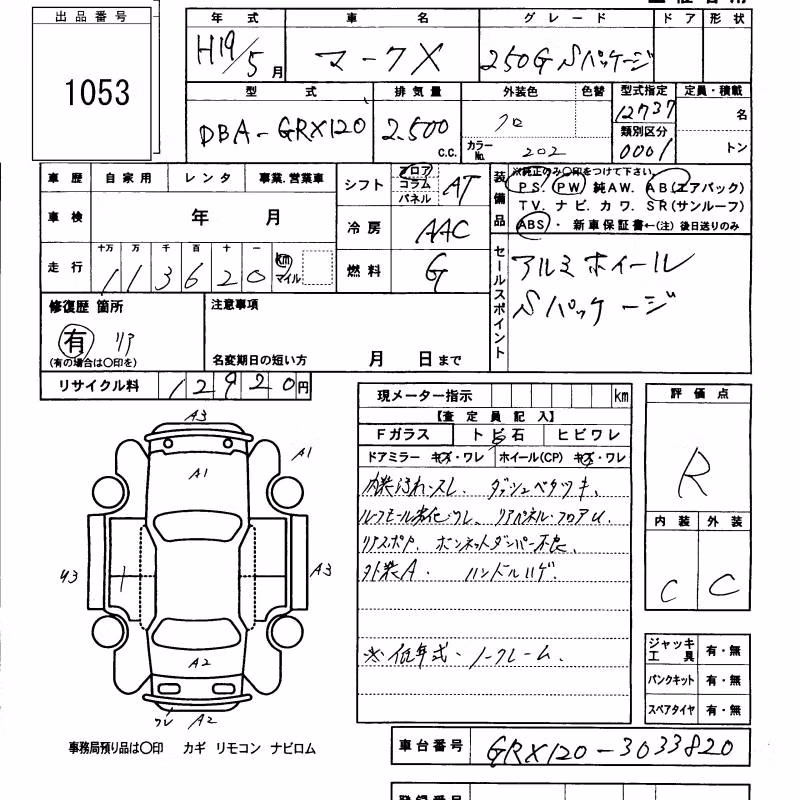 出品番号
1053
年式 車名 グレード ドア 形状
H19/5月 マークX 250G Sパッケージ
型式 排気量 外装色 色替 型式指定 定員・積載
DBA-GRX120 2.500 c.c. クロ カラーNo. 202 12737 名
類別区分 0001 トン
車歴 自家用 レンタ 事業.営業車
車検 年 月
走行 十万 万 千 百 十 一
113620 km マイル
シフト フロア コラム パネル AT
冷房 AAC
燃料 G
装備品 ※純正のみ〇印をつけて下さい。
PS. PW 純AW. AB(エアバック)
TV. ナビ. カワ. SR(サンルーフ)
ABS・ 新車保証書←(注) 後日送りのみ
セールスポイント
アルミホイール
Sパッケージ
修復歴 箇所
有 リア
(有の場合は〇印を)
注意事項
名変期日の短い方 月 日まで
リサイクル料 12920円
現メーター指示 km
【査定員記入】
Fガラス トビ石 ヒビワレ
ドアミラー キズ・ワレ ホイール(CP) キズ・ワレ
内装汚れ・スレ、ダッシュベタツキ、
ルーフモール劣化・ワレ、リアパネル・フロアU、
リアスポ7、ボンネットダンパー不良、
外装A. ハンドルハゲ.
※低年式・ノークレーム.
評価点
R
内装 外装
C C
ジャッキ工具 有・無
パンクキット 有・無
スペアタイヤ 有・無
A3
A1
A1
U3
A3
A2
ワレ A2
事務局預り品は〇印 カギ リモコン ナビロム
車台番号 GRX120-3033820
登録番号